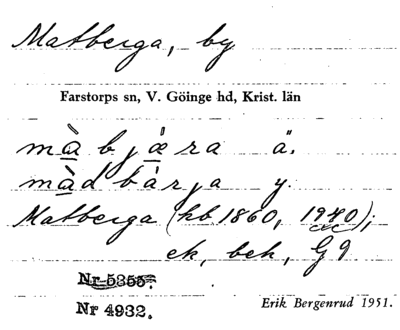 Matberga, by
Farstorps sn, V. Göinge hd, Krist. län
mà bjæ̀ra ä.
màd bàrja y.
Matberga (hb 1860, 1940);
ek, bek, G9
Nr 5355.
Nr 4932.
Erik Bergenrud 1951.